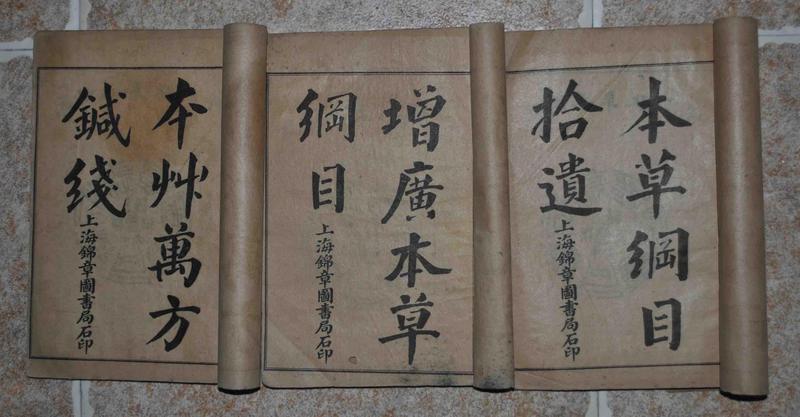 本草綱目
拾遺
上海錦章圖書局石印
增廣本草
綱目
上海錦章圖書局石印
本艸萬方
鍼綫
上海錦章圖書局石印